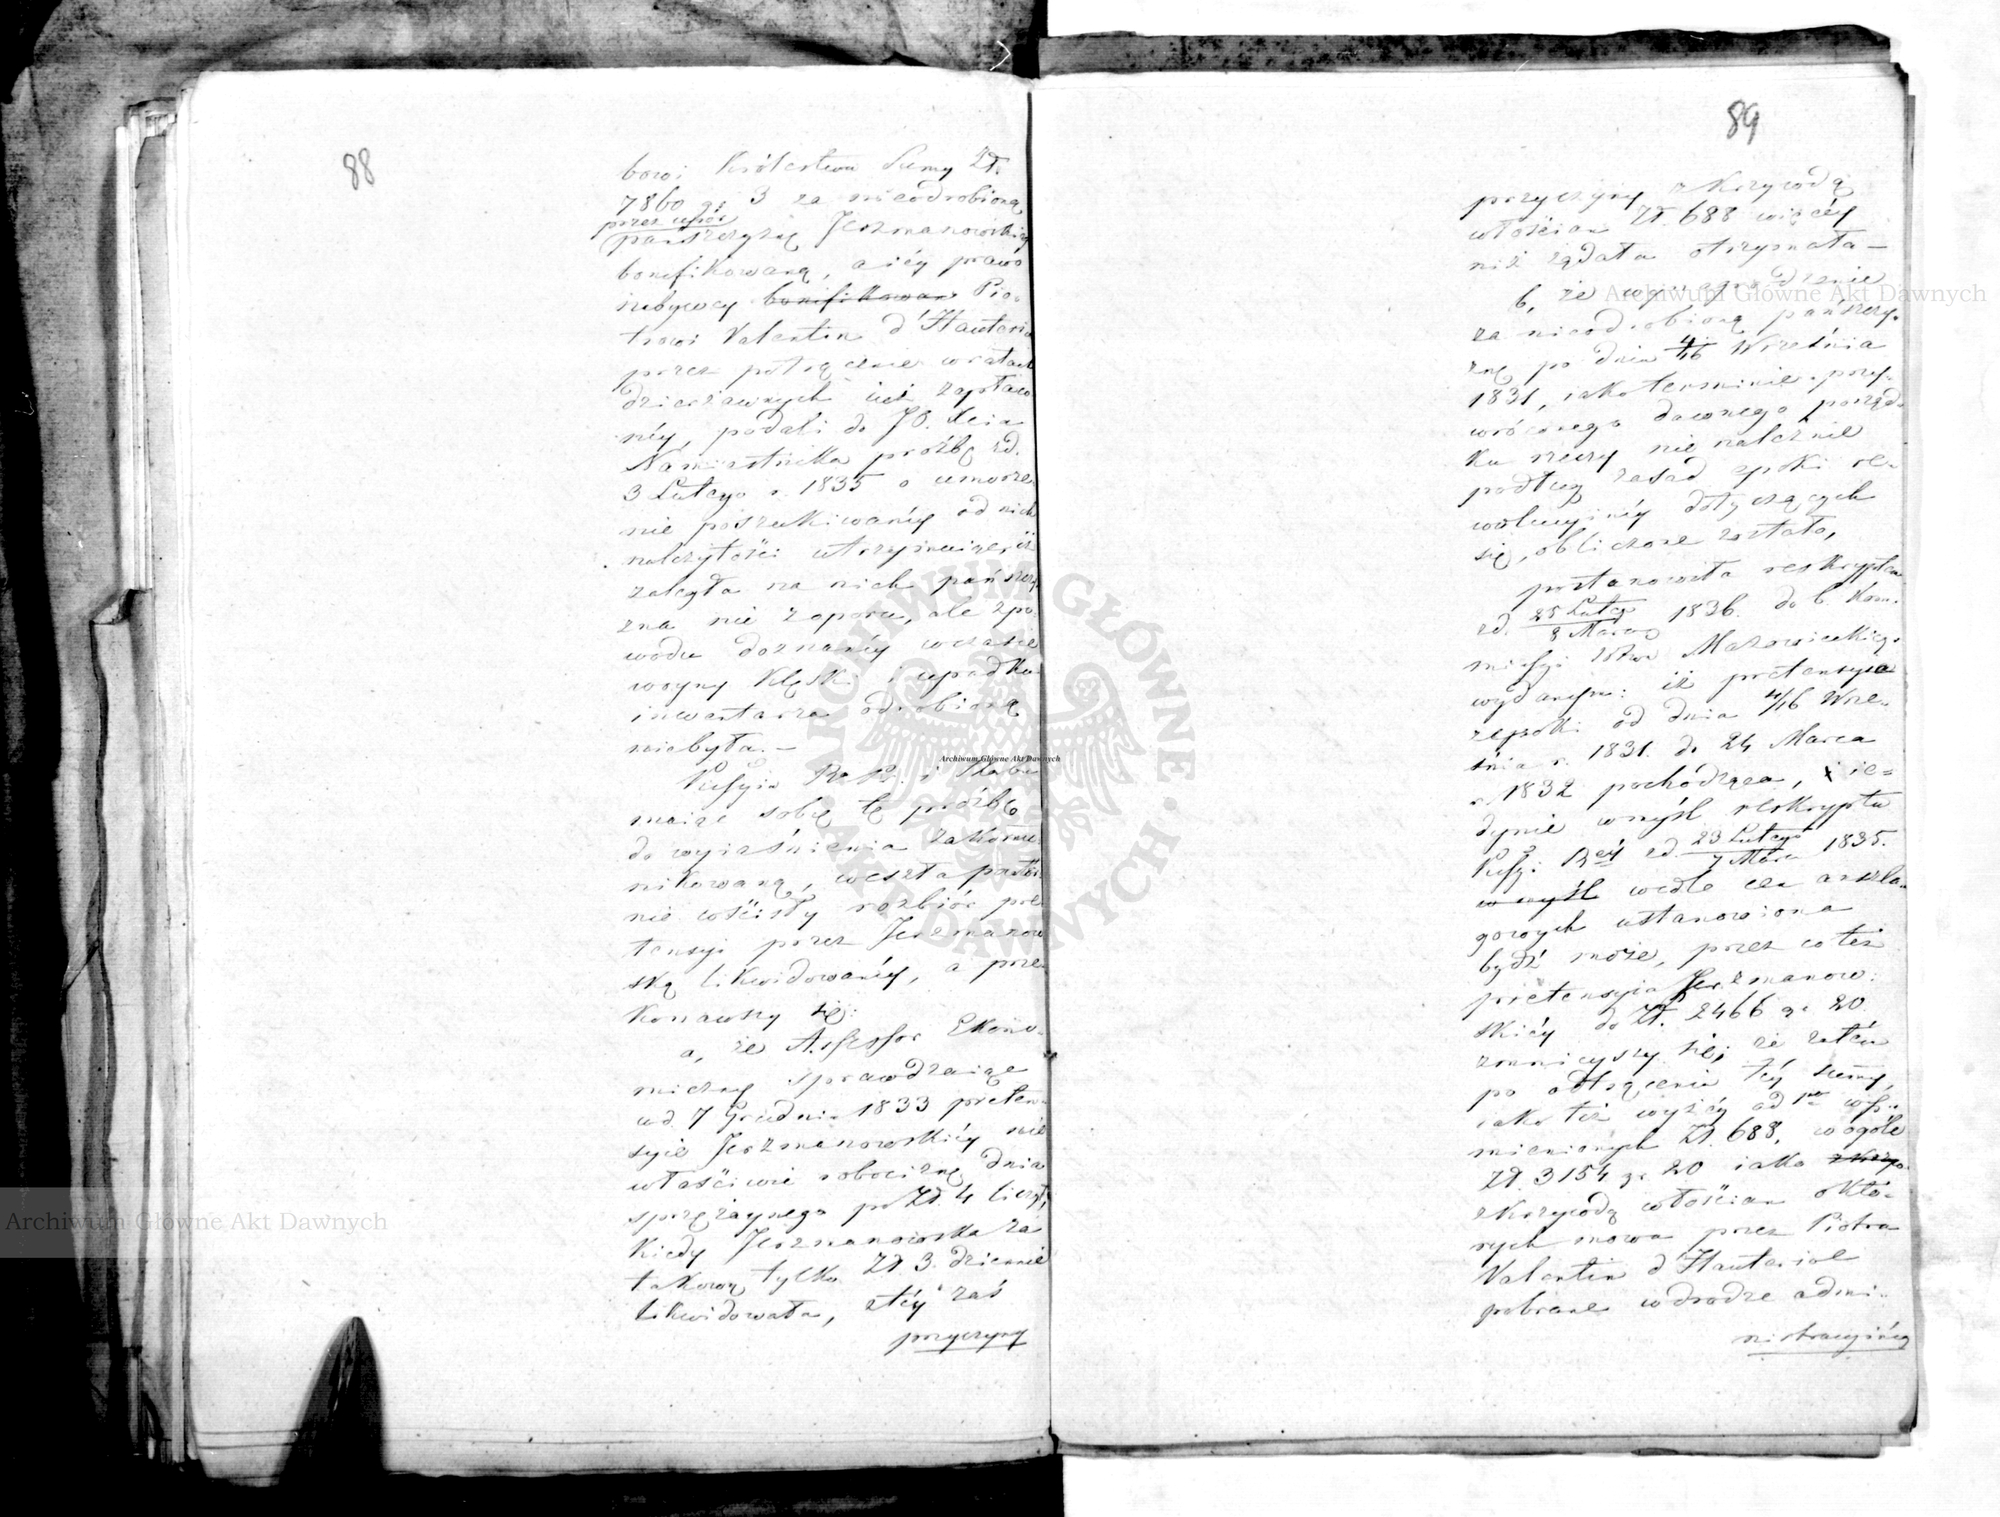 88
bowi Królestwa Summy Zł.
7860 gr 3 za nieodrobioną
przez upór
pańszczyznę Jerzmanowskiey
bonifikowaną, a iéy prawo
nabywcy bonifikowan Pio-
trowi Valentin d'Hauteriv
przez potrącenie w ratach
dzierżawnych iuż zapłaco
néy, podali do JO. Xcia
Namiestnika prośbę zd.
3 Lutego r. 1835 o umorze
nie poszukiwanéy od nich
należytości utrzymuiąc, iż
zaległa na nich pańszczy
zna nie z oporu, ale z po
wodu doznanéy w czasie
woyny klęski i upadku
inwentarza odrobioną
niebyła.—
Kossyia R. P. i Skarbu
maiąc sobie tę prośbę
do wyiaśnienia zakomu
nikowaną, weszła powtór
nie w ścisły rozbiór pre
tensyi przez Jerzmanow
ską likwidowanéy, a prze
konawszy się:
a, że Assessor Ekono-
miczny sprawdzaiąc
w d. 7 Grudnia 1833 preten-
syie Jerzmanowskiéy nie
właściwie robociznę dnia
sprzężaynego po Zł. 4 liczył,
kiedy Jerzmanowska za
takową tylko Zł 3. dziennie
likwidowała, z téy zaś
przyczyny
89
przyczyny z krzywdą
włościan Zł. 688 więcéy
niż żądała otrzymała—
b, że wynagrodzenie
za nieodrobioną pańszczy-
znę po dniu 4/16 Września
1831, iako terminie przy-
wróconego dawnego porząd-
ku rzeczy nie należnie
podług zasad epoki re-
wolucyinéy dotyczących
się, obliczone zostało,
postanowiła reskryptem
zd. 25 Lutego/8 Marca 1836. do b. Kom-
missyi Wdwa Mazowieckiego
wydanym: iż pretensyia
z epoki od dnia 4/16 Wrze-
śnia r. 1831. do 24 Marca
r. 1832 pochodząca, ie-
dynie w myśl reskryptu
Kossyi Rey zd. 23 Lutego/7 Marca 1835.
w myśl wedle cen anszla-
gowych ustanowiona
bydź może, przez co też
pretensyia Jerzmanow-
skiéy do Zł. 2466 gr 20
zmnieyszy się; że zatém
po odtrąceniu téy summy,
iako też wyżéy ad 1mo wspo-
mnionych Zł. 688, w ogóle
Zł. 3154 gr 20 iako z krzy
z krzywdą włościan o któ-
rych mowa przez Piotra
Valentin d'Hauterive
pobrane w drodze admi-
nistracyinéy